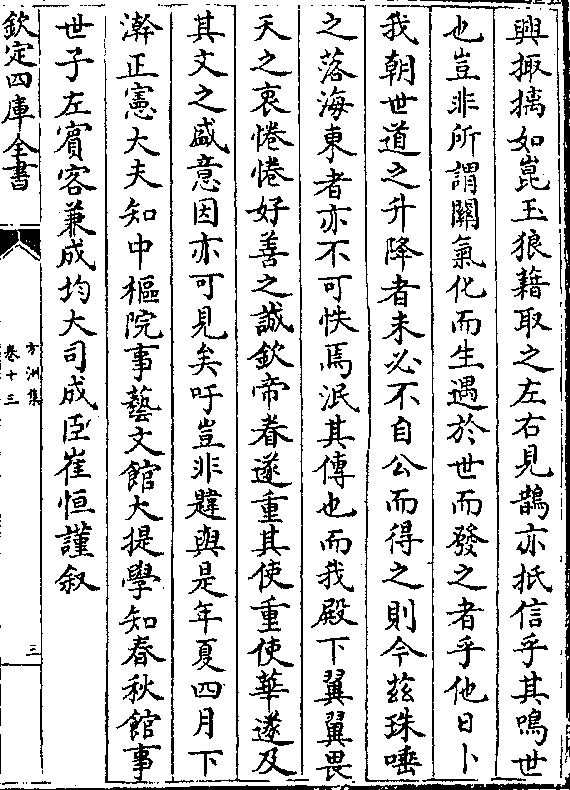 興掫摛如崑玉狼藉取之左右見鵲亦抵信乎其鳴世
也豈非所謂關氣化而生遇於世而發之者乎他日卜
我朝世道之升降者未必不自公而得之則今兹珠唾
之落海東者亦不可怢焉泯其傳也而我殿下翼翼畏
天之衷惓惓好善之誠欽帝眷遂重其使重使華遂及
其文之盛意因亦可見矣吁豈非韙與是年夏四月下
澣正憲大夫知中樞院事藝文館大提學知春秋館事
世子左賓客兼成均大司成臣崔恒謹叙
欽定四庫全書
方洲集
卷十三
三